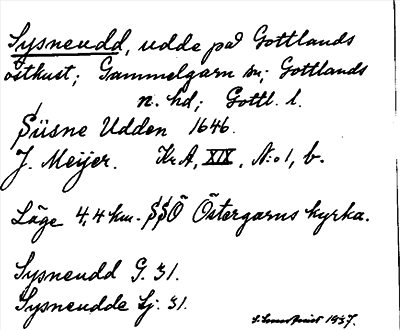 Sysneudd, udde på Gottlands
östkust; Gammelgarn sn; Gottlands
n. hd; Gottl. l.
Süsne Udden 1646.
J. Meijer. KrA, XIX, N:o 1, b.
Läge 4,4 km. SSÖ Östergarns kyrka.
Sysneudd G. 31.
Sysneudde Lj. 31.
1937.